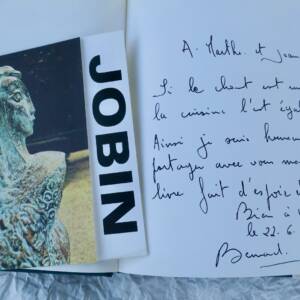 JOBIN
A. Marthe et Jean
Si le chant est un
la cuisine l'est éga
Ainsi je suis heureu
partager avec vous m
livre fait d'espoir
Bien à
le 22.6.
Bernard